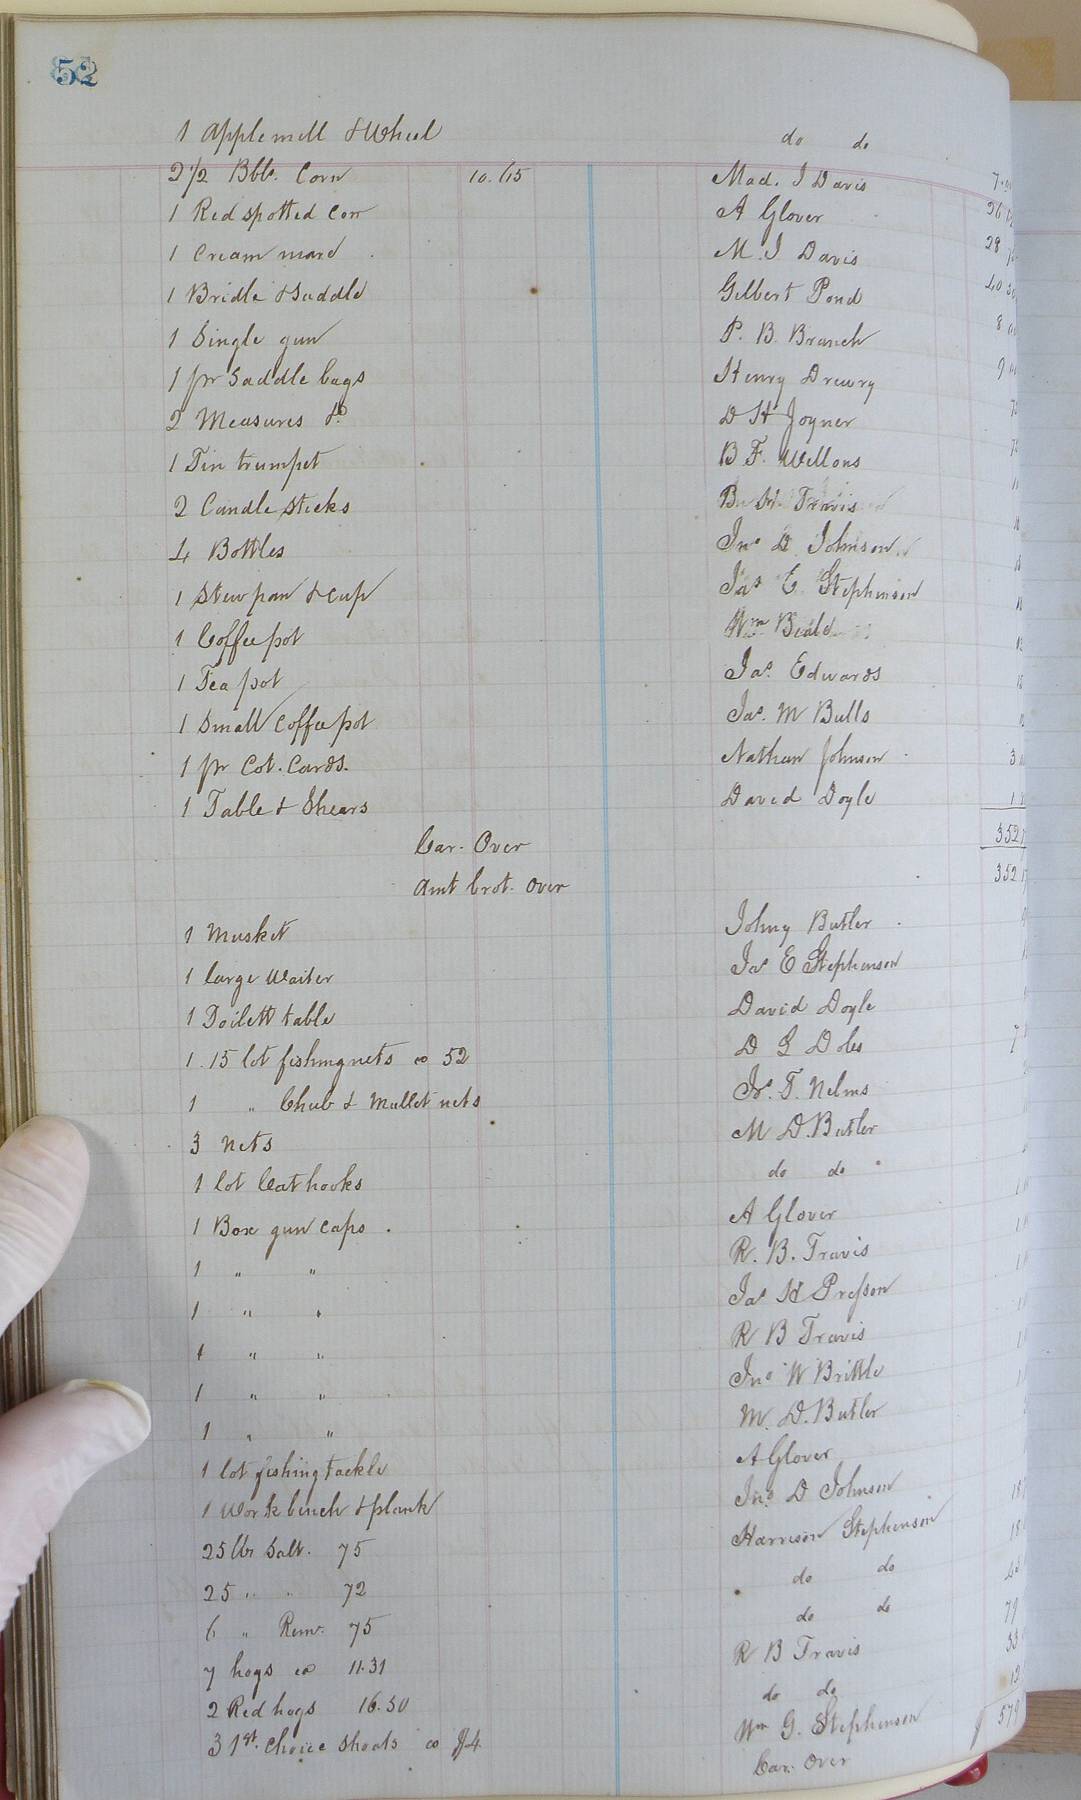 52
1 Applemill & Wheel do do
2 1/2 Bbls. Corn 10.65 Mad. J Davis
1 Red spotted Cow A Glover
1 Cream mare M. J Davis
1 Bridle & Saddle Gilbert Pond
1 Single gun P. B. Branch
1 pr Saddle bags Henry Drewry
2 Measures &c D H Joyner
1 Tin trumpet B F. Wellons
2 Candle Sticks Travis
4 Bottles Jno D Johnson
1 Stew pan & cup Jas E Stephenson
1 Coffee pot Wm Beale
1 Tea pot Jas. Edwards
1 Small Coffee pot Jas. M Bulls
1 pr Cot. Cards. Nathan Johnson
1 Table & Shears David Doyle
Car. Over 352
Amt Brot. Over 352
1 Musket Johny Butler
1 large Waiter Jas E Stephenson
1 Toilett table David Doyle
1 . 15 lot fishing nets @ 52 D G Doles
1 " Chub & Mullet nets T. Nelms
3 nets M D. Butler
1 lot Cat hooks do do
1 Box gun caps . A Glover
1 " " R. B. Travis
1 " " Jas H Presson
1 " " R B Travis
1 " " Jno W Brittle
1 " " M. D. Butler
1 lot fishing tackle A Glover
1 Work bench & plank Jno D Johnson
25 lbs Salt. 75 Harrison Stephenson
25 " " 72 do do
6 " Rem. 75 do do
7 hogs @ 11.31 R B Travis
2 Red hogs 16.50 do do
3 1st. Choice Shoats @ $4 Wm G. Stephenson
Car. Over